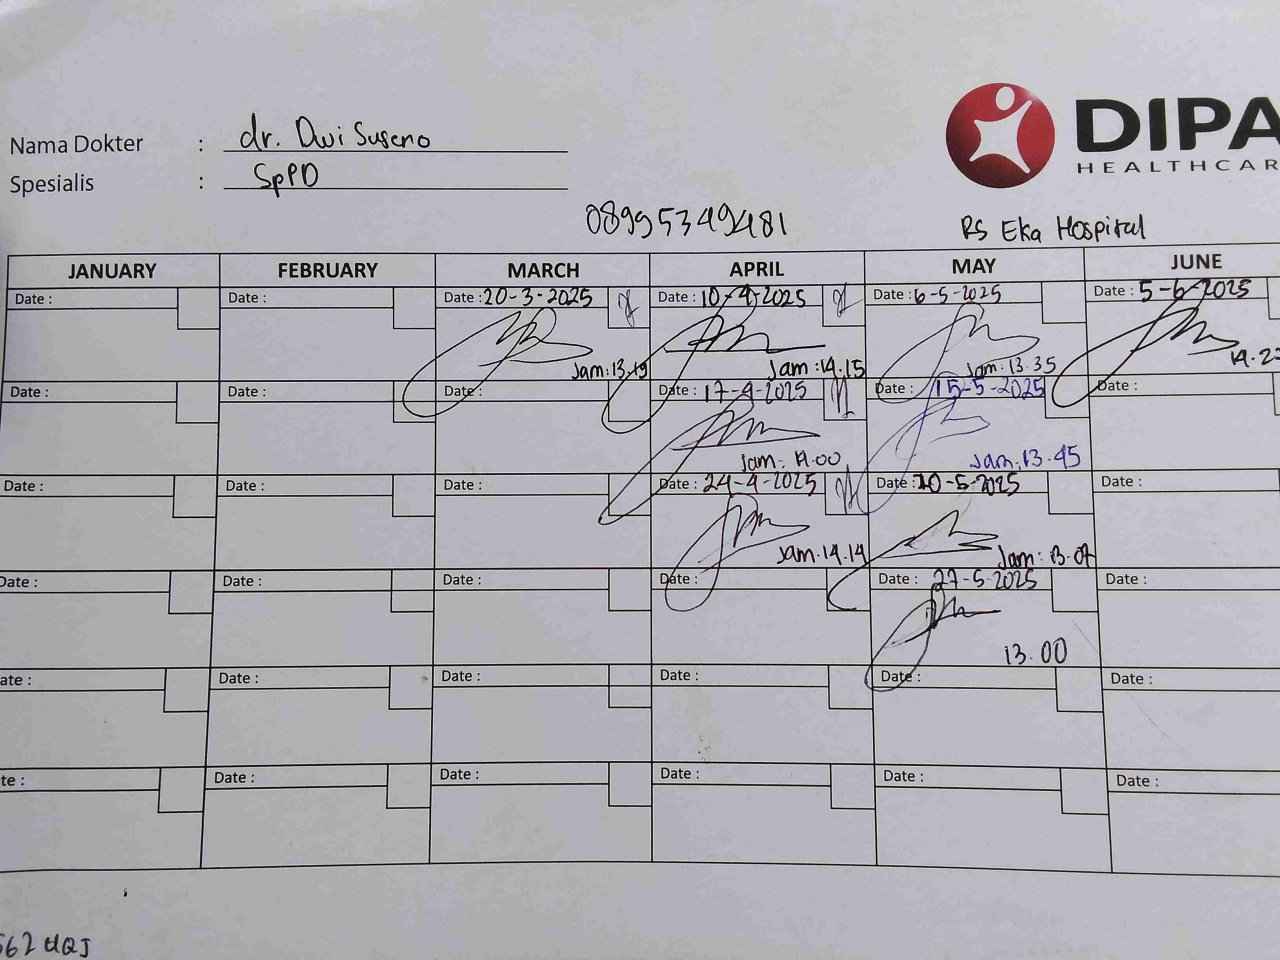 DIPA
HEALTHCAR
Nama Dokter : dr. Dwi Suseno
Spesialis : SpPD
08995349481
RS Eka Hospital
JANUARY FEBRUARY MARCH APRIL MAY JUNE
Date : Date : Date : 20-3-2025 Date : 10-4-2025 Date : 6-5-2025 Date : 5-6-2025
Jam : 13.19 Jam : 14.15 Jam : 13.35
Date : Date : Date : Date : 17-4-2025 Date : 15-5-2025 Date :
Jam : 14.00 Jam : 13.45
Date : Date : Date : Date : 24-4-2025 Date : 20-5-2025 Date :
Jam : 14.14 Jam : 13.07
Date : Date : Date : Date : Date : 27-5-2025 Date :
13.00
ate : Date : Date : Date : Date : Date :
te : Date : Date : Date : Date : Date :